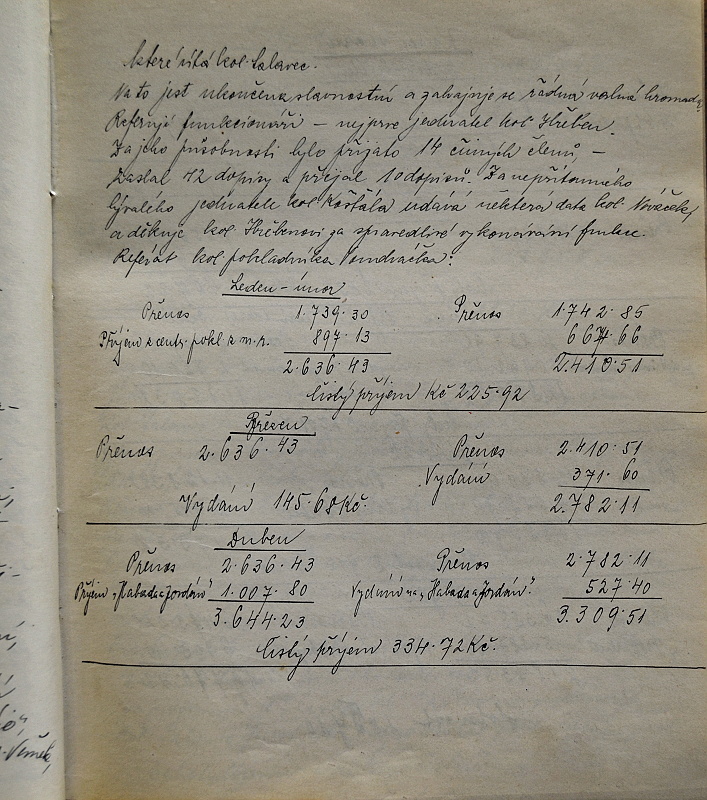 které vítá kol. Talavec.
Na to jest ukončena slavnostní a zahajuje se řádná valná hromada,
Referují funkcionáři – nejprve jednatel kol. Hřeben.
Za jeho působnosti bylo přijato 14 činných členů, –
Zaslal 42 dopisy a přijal 10 dopisů. Za nepřítomného
bývalého jednatele kol. Košťála udává některá data kol. Nováček,
a děkuje kol. Hřebenovi za spravedlivé vykonávání funkce.
Referát kol. pokladníka Vondráčka:
Leden – únor
Přenos 1.739.30 Přenos 1.742.85
Příjem z centr. pokl. z m. r. 897.13 667.66
2.636.43 2.410.51
Čistý příjem Kč 225.92
Březen
Přenos 2.636.43 Přenos 2.410.51
Vydání 371.60
Vydání 145.68 Kč. 2.782.11
Duben
Přenos 2.636.43 Přenos 2.782.11
Příjem „Habada a Jordán" 1.007.80 Vydání na „Habada a Jordán". 527.40
3.644.23 3.309.51
Čistý příjem 334.72 Kč.